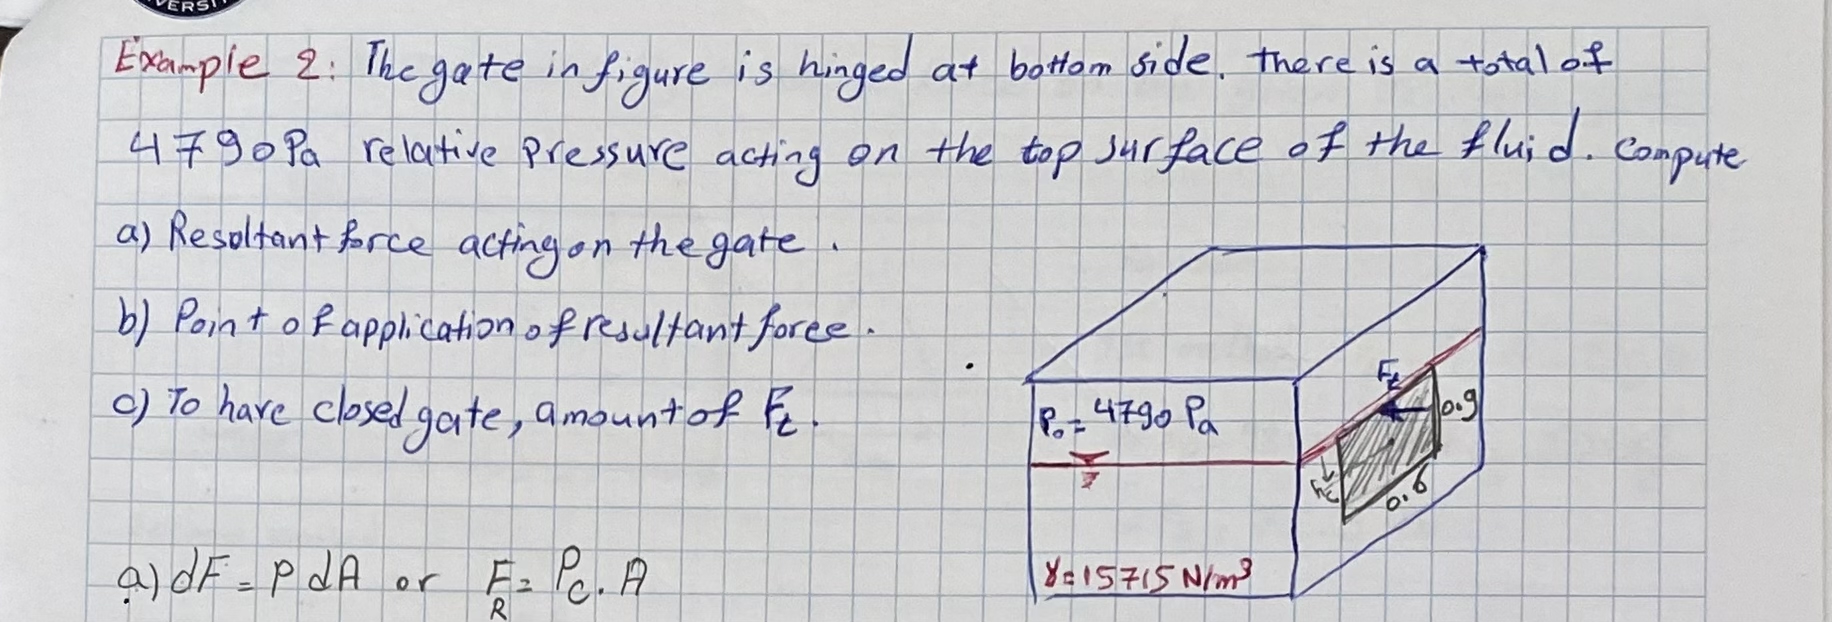 VERSI
Example 2: The gate in figure is hinged at bottom side. there is a total of
4790Pa relative pressure acting on the top surface of the fluid. Compute
a) Resoltant force acting on the gate.
b) Point of application of resultant force.
c) To have closed gate, amount of Ft.
Ft
0.9
P₀ = 4790 Pa
hc
0.6
γ=15715 N/m³
a) dF = P dA or F_R = Pc. A